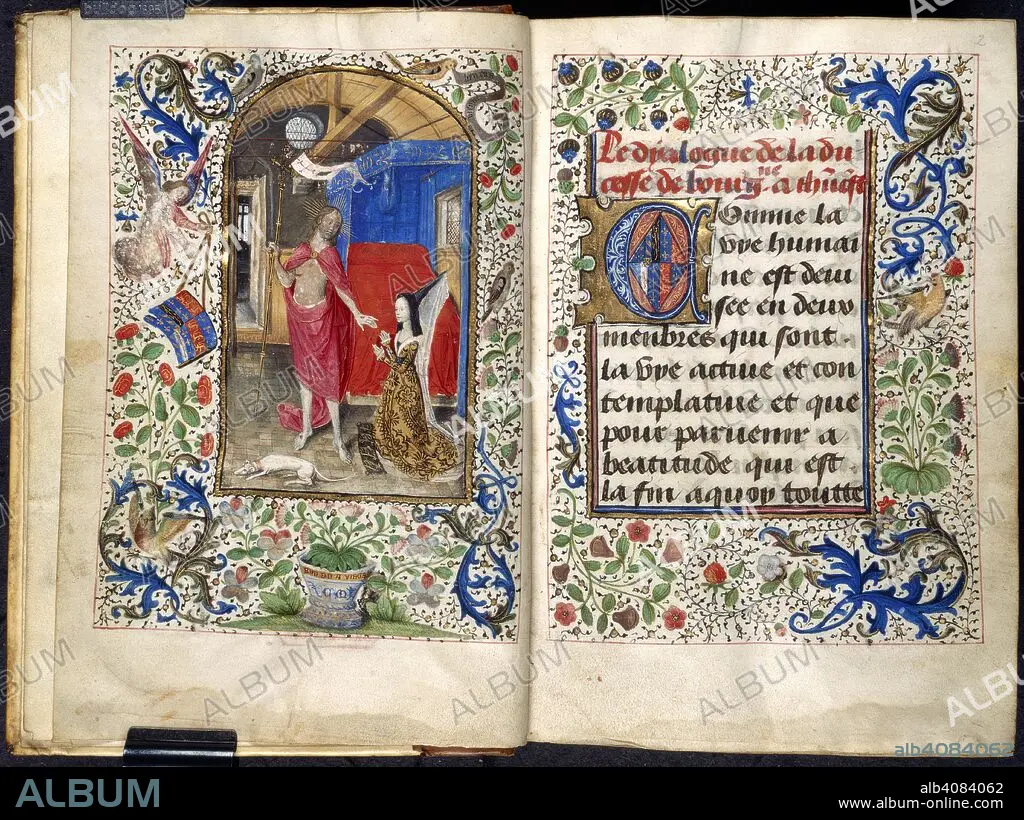 Le dyalogue de la du
cesse de bourgne a ihust
Comme la
vye humai
ne est deui
see en deux
menbres qui sont
la vye actiue et con
templatiue et que
pour paruenir a
beatitude qui est
la fin a quoy toutte
2
ALBUM
alb4084062
ALBUM
alb4084062
www.album-online.com